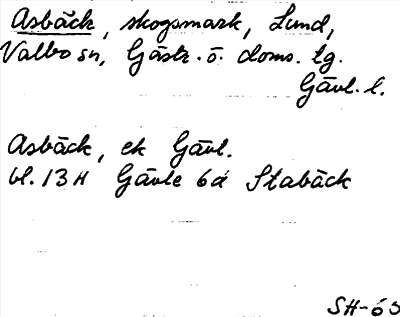 Asbäck, skogsmark, Lund,
Valbo sn, Gästr. ö. doms. tg.
Gävl. l.
Asbäck, ek Gävl.
bl. 13 H Gävle 6d Stabäck
SH-65